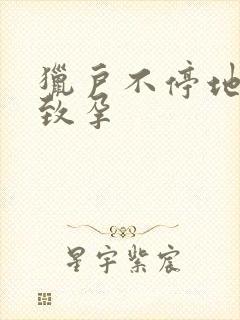 獵戶不停地
致孕
星宇紫宸